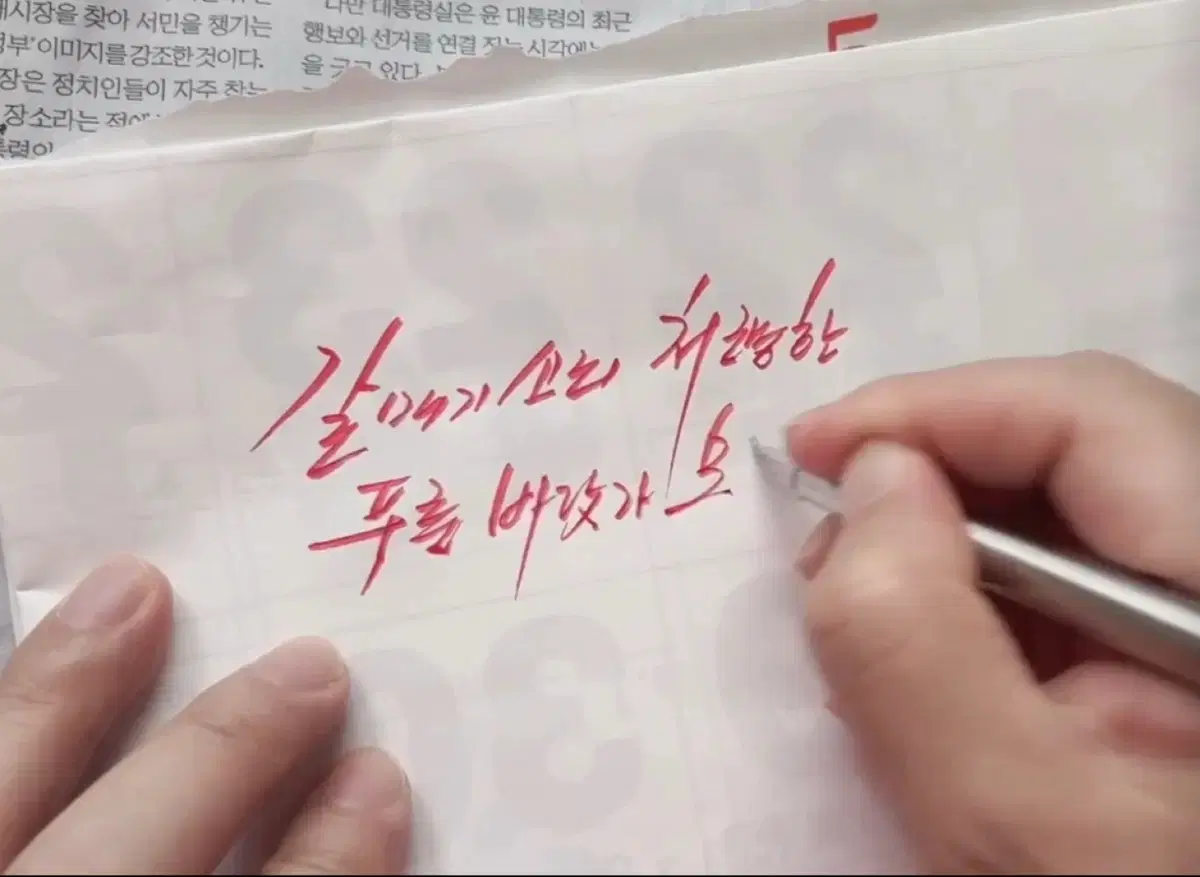 시장을 찾아 서민을 챙기는
이미지를 강조한 것이다.
장은 정치인들이 자주 찾는
장소라는 점에
다만 대통령실은 윤 대통령의 최근
행보와 선거를 연결 짓는 시각에는
을 긋고 있다.
갈매기 소리 처량한
푸름 바닷가 모